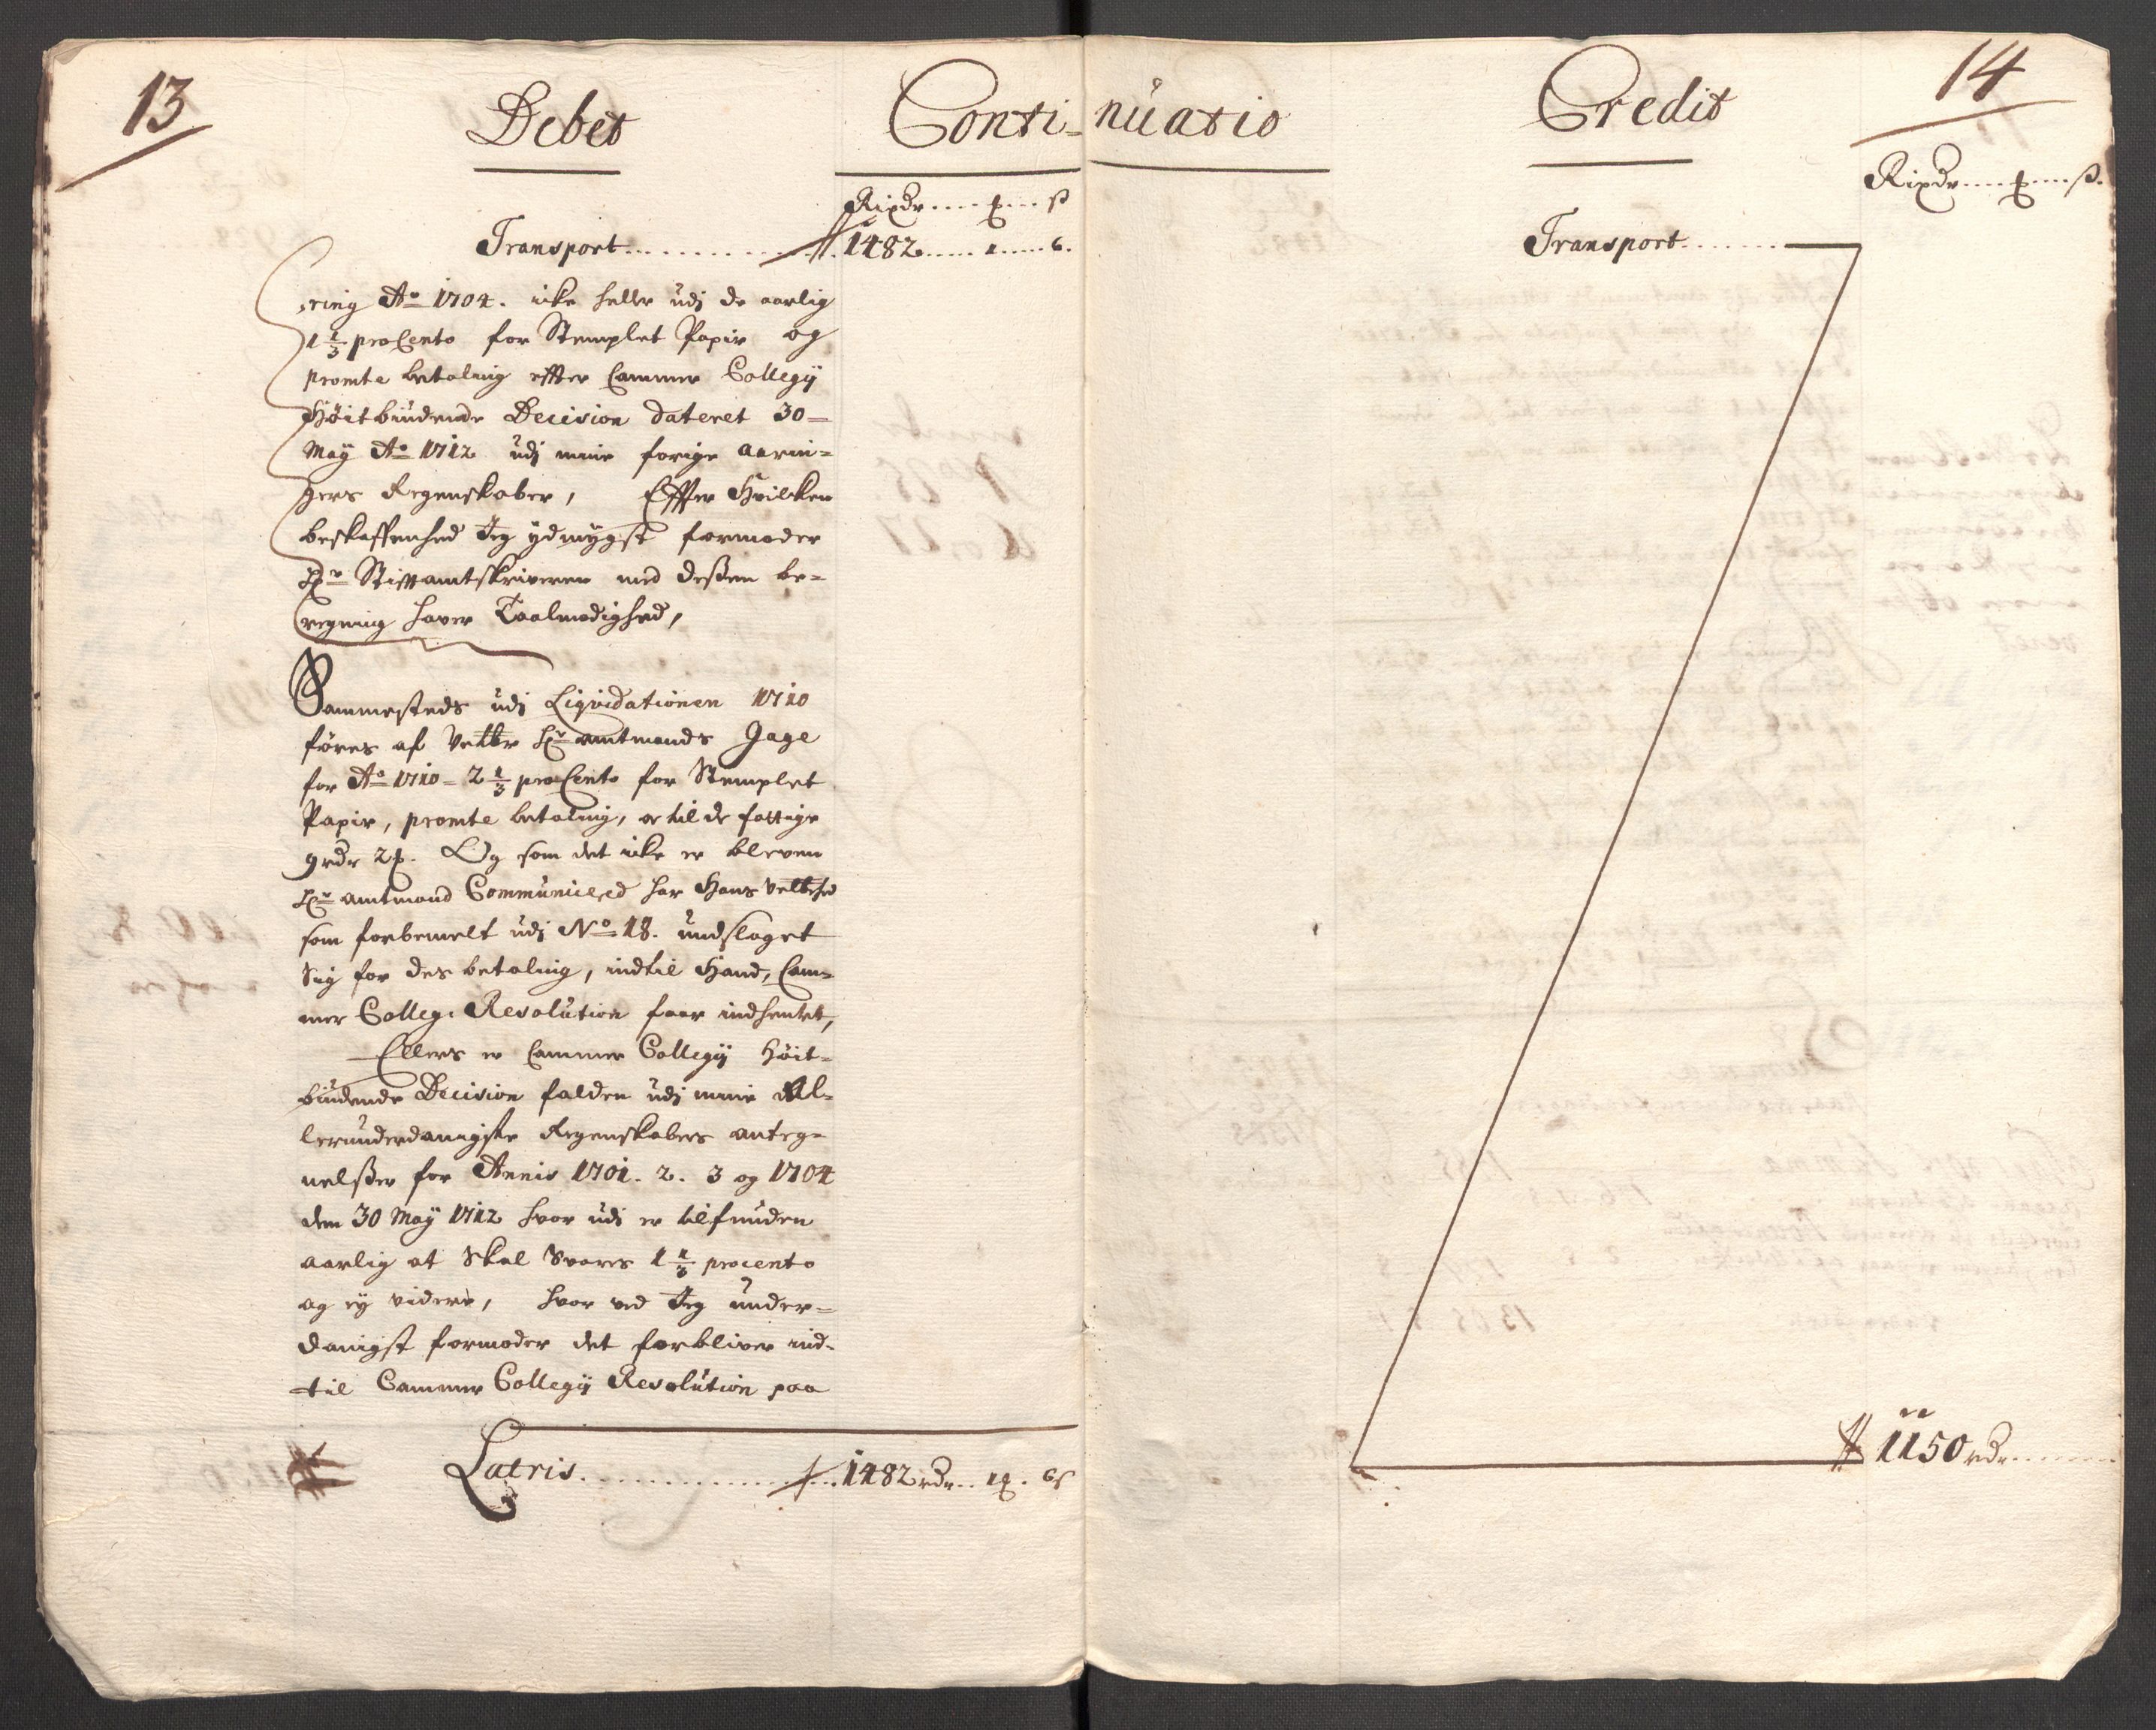 13
Debet
Conti-
Rixdr .... ₰ ... ß
Transport ........... 1482 ..... 1 .... 6.
ring Ao 1704. icke heller udj de aarlig
1 1/3 proCento for Stemplet Papir og
promte betaling effter Cammer Collegij
Høitbiudende Decision dateret 30
May Ao 1712 udj mine forige aarin-
gers Regenskaber, Effter Hvilken
beskaffenhed Jeg ydmygst formoder
Hr Stifftamtskriveren med deßen be-
regning haver Taalmodighed,
Sammesteds udj Liqvidationen 1710
føres af Velbr Hr amtmands Gage
for Ao 1710 - 2 1/3 proCento for Stemplet
Papir, promte betaling, oc til de fattige
9 rdr 2 ₰. Og som det icke er bleven
Hr amtmand Communiceed har Hans Velbhed
som forbemelt udj No 18. undslaget
Sig for des betaling, indtil Hand, Cam-
mer Colleg: Resolution faar indhentet,
Ellers er Cammer Collegij Høit-
biudende Decision falden udj mine Al-
lerunderdanigste Regenskabers anteg-
nelßer for Annis 1701. 2. 3 og 1704
dem 30 May 1712 hvor udj er tilfunden
aarlig at Skal Svares 1 1/3 procento
og ej videre, hvor ved Jeg under-
danigst formoder det forbliver ind-
til Cammer Collegij Resolution paa
Latris ............ 1482 rdr .. 1 ₰. 6 ß
14
nuatio
Credit
Rixdr .... ₰ .... ß.
Transport .......
1150 rdr .......